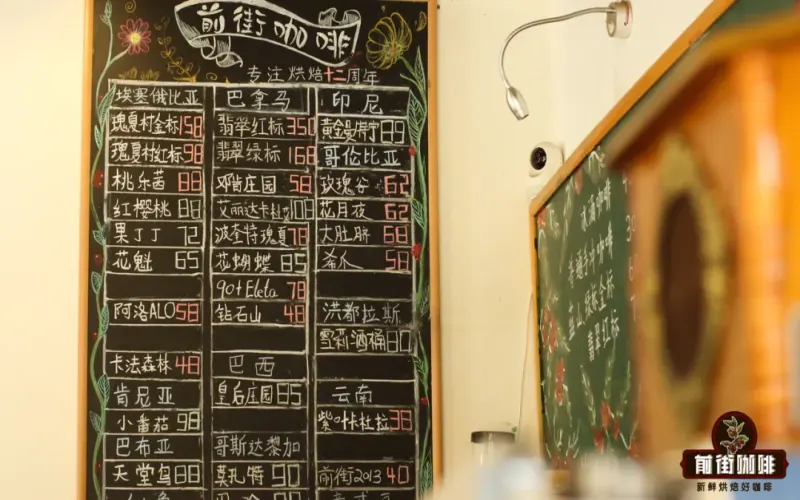 前街咖啡
专注烘焙十二周年
埃塞俄比亚 巴拿马 印尼
瑰夏村金标 158 翡翠红标 350 黄金曼特宁 89
瑰夏村红标 98 翡翠绿标 168 哥伦比亚
桃乐茜 88 邓肯庄园 58 玫瑰谷 62
红樱桃 88 艾丽达卡杜 花月夜 62
果丁丁 72 波奎特瑰夏 78 大肚脐 68
花魁 65 花蝴蝶 85 希爪 58
90+ Eleta 78
阿洛ALO 58 钻石山 48 洪都拉斯
雪莉酒桶 80
卡法森林 48 巴西
肯尼亚 皇后庄园 85 云南
小番茄 98 紫叶卡杜拉 38
巴布亚 哥斯达黎加
天堂鸟 88 莫扎特 90 前街2013 40
冰滴咖啡
蓝山 绿标 金标
翡翠红标
前街咖啡
新鲜烘焙好咖啡